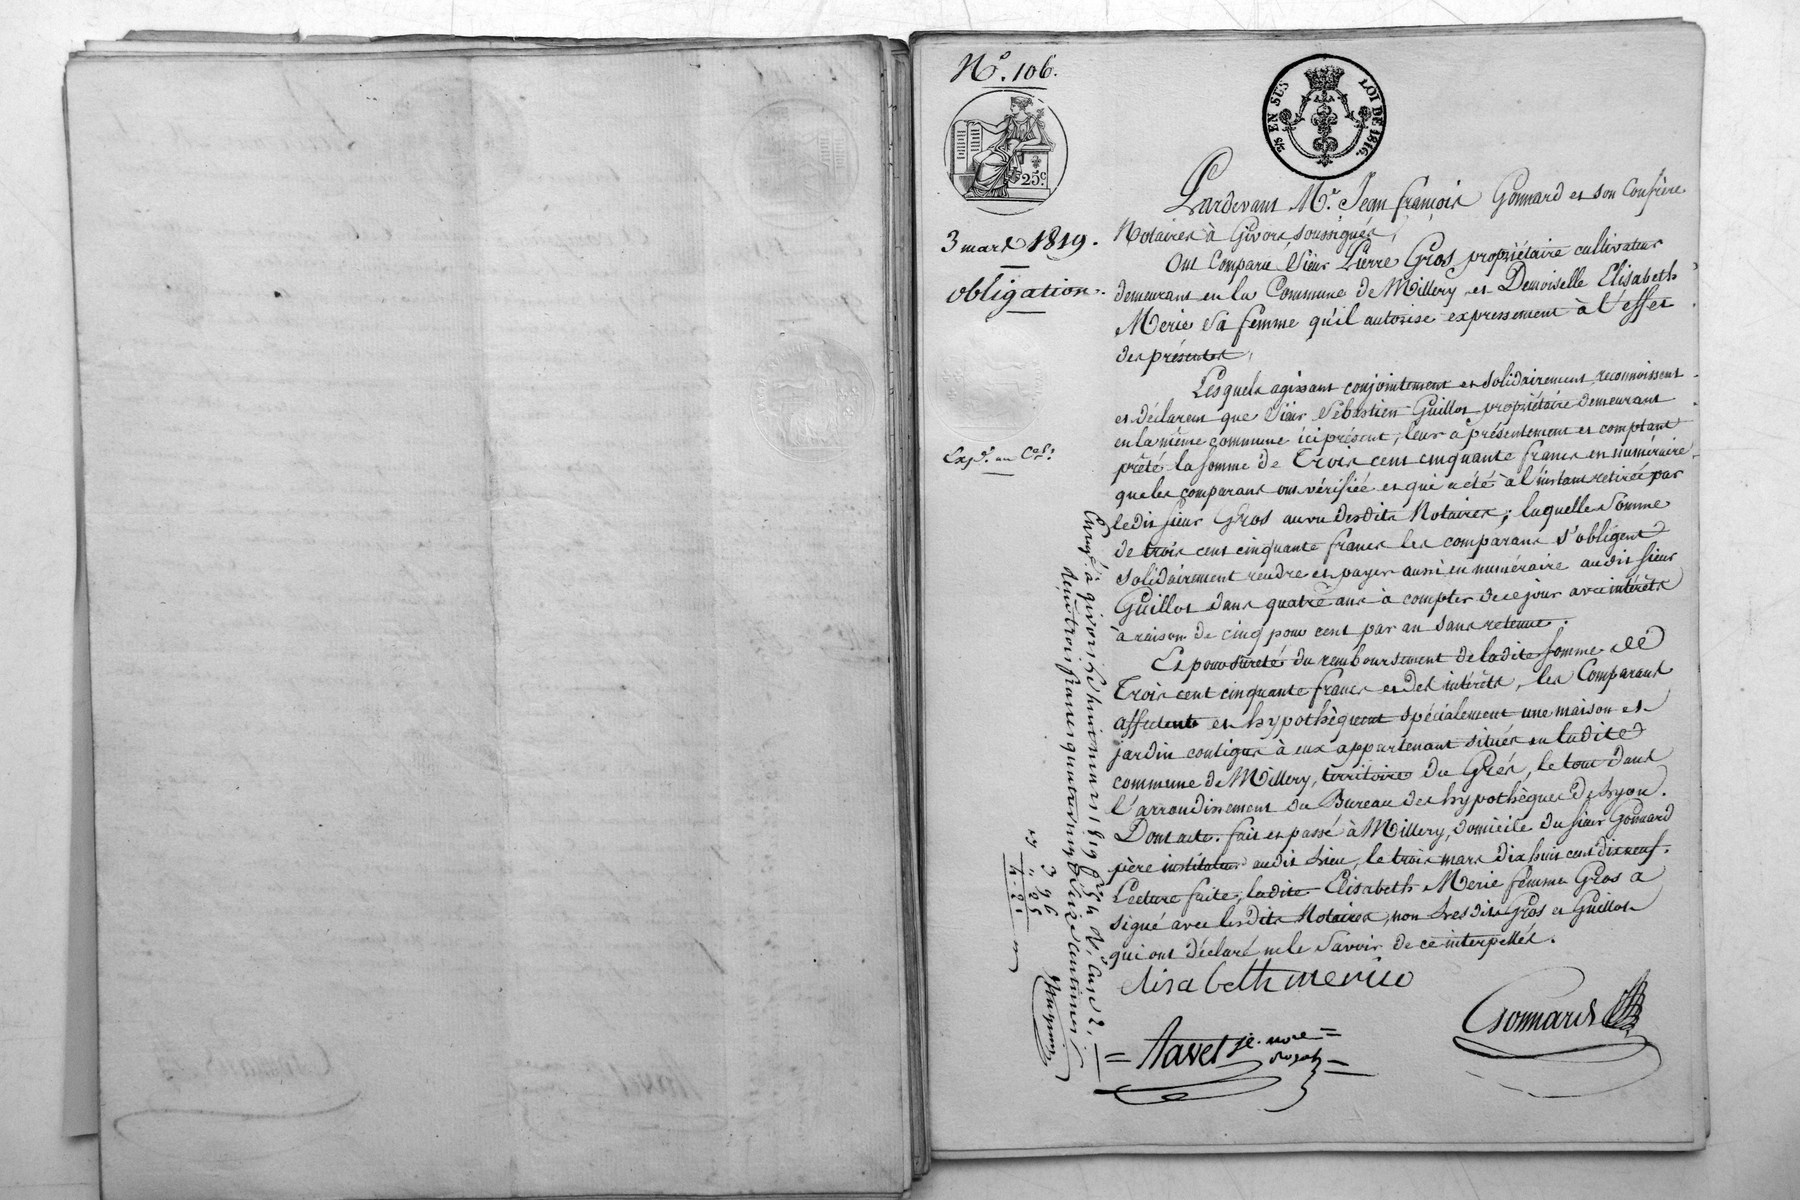 N.º 106.
25 EN SUS LOI DE 1816.
25.ᶜ
3 mars 1819.
obligation.
Pardevant M.ᵉ Jean françois Gonnard et son Confrère
Notaires à Givors, soussignés,
Ont Comparu Sieur Pierre Gros propriétaire cultivateur
demeurant en la Commune de Millery et Demoiselle Elisabeth
Merie sa femme qu'il autorise expressement à l'effet
des présentes,
Lesquels agissant conjointement et solidairement reconnoissent
et déclarent que Sieur Sébastien Guillot propriétaire demeurant
en la même commune ici présent, leur a présentement et comptant
prêté la somme de Trois cent cinquante francs en numéraire
que les comparans ont vérifiée et qui a été à l'instant retirée par
ledit sieur Gros au vu desdits Notaires; laquelle Somme
de trois cent cinquante francs les comparans s'obligent
solidairement rendre et payer aussi en numéraire audit sieur
Guillot dans quatre ans à compter de ce jour avec intérêts
à raison de cinq pour cent par an sans retenue.
Et pour sureté du remboursement de ladite somme de
Trois cent cinquante francs et des intérêts, les Comparans
affectent et hypothèquent spécialement une maison et
jardin contigus à eux appartenant situés en ladite
commune de Millery, territoire du Grés, le tout dans
l'arrondissement du Bureau des hypothèques de Lyon.
Dont acte. fait et passé à Millery, domicile du sieur Gonnard
père instituteur audit Lieu, le trois mars dix huit cent dix neuf.
Lecture faite, ladite Elisabeth Merie femme Gros a
signé avec lesdits Notaires, non Lesdits Gros et Guillot
qui ont déclaré ne le Savoir de ce interpellés.
elisabeth merie
Gonnard
Tavet
Enreg.ᵉ à givors le huit mars 1819 f.º 4 v.º Case 2,
trois francs quatre vingt seize centimes
3 96